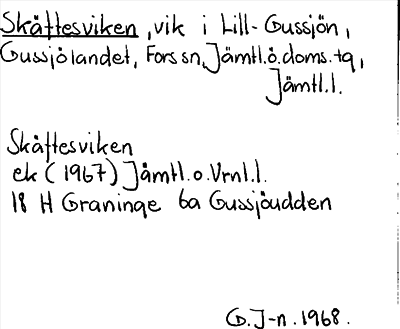 Skåftesviken, vik i Lill-Gussjön,
Gussjölandet, Fors sn, Jämtl.ö.doms.tg,
Jämtl.l.
Skåftesviken
ek (1967) Jämtl.o.Vrnl.l.
18 H Graninge 6a Gussjöudden
G.J-n.1968.